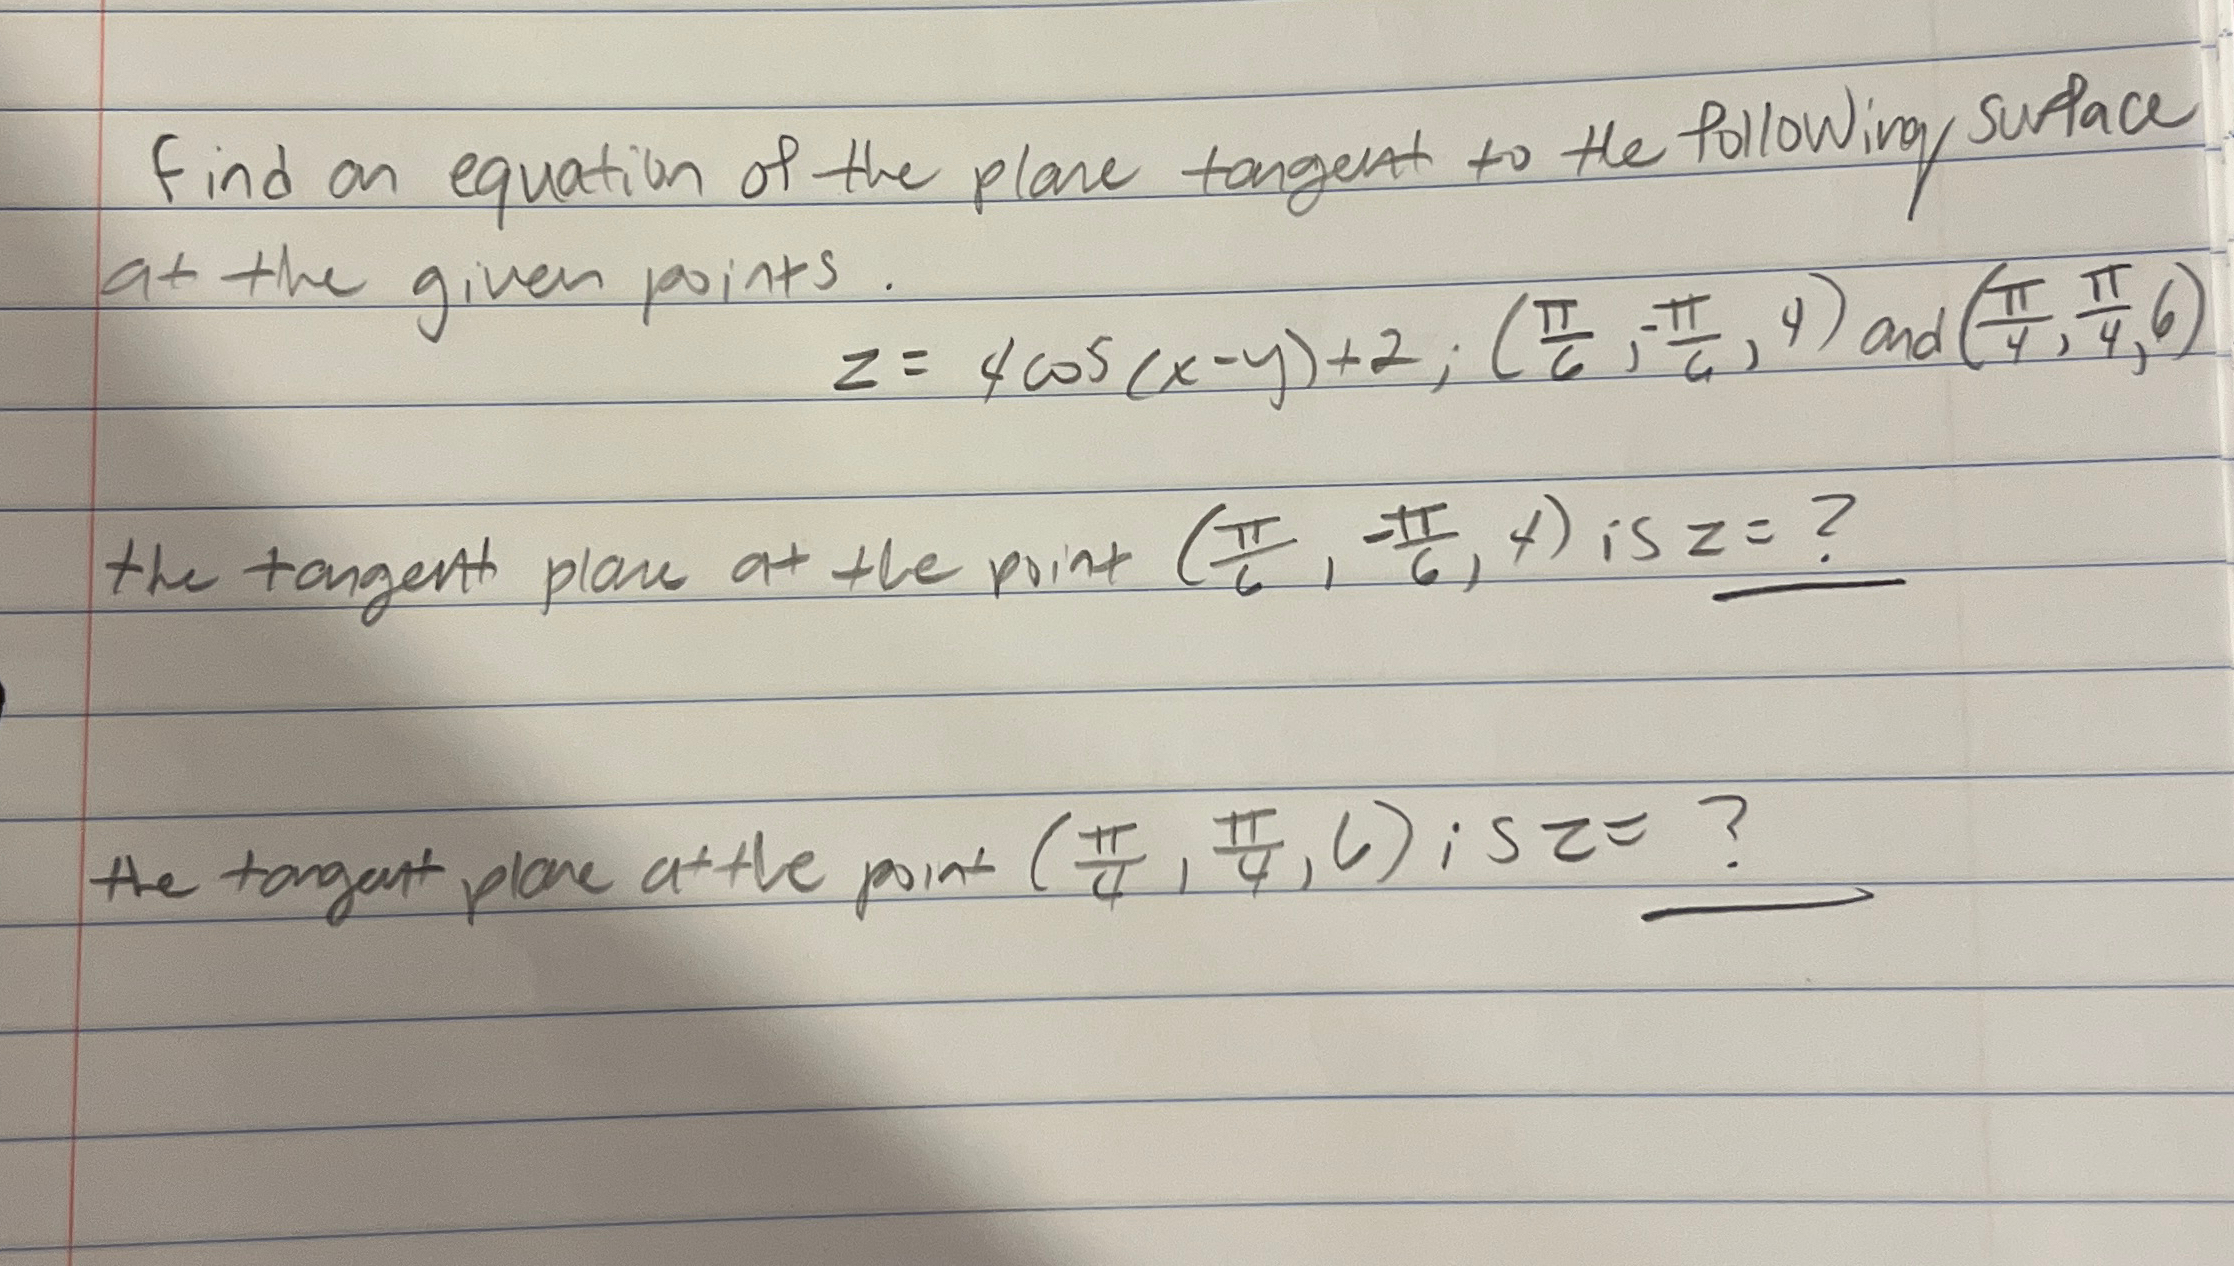 Find an equation of the plane tangent to the following surface
at the given points.
z = 4cos(x-y)+2; (π/6, -π/6, 4) and (π/4, π/4, 6)
the tangent plane at the point (π/6, -π/6, 4) is z = ?
the tangent plane at the point (π/4, π/4, 6) is z = ?